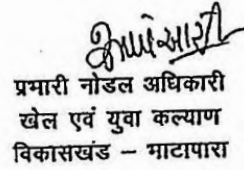 प्रभारी नोडल अधिकारी
खेल एवं युवा कल्याण
विकासखंड – भाटापारा